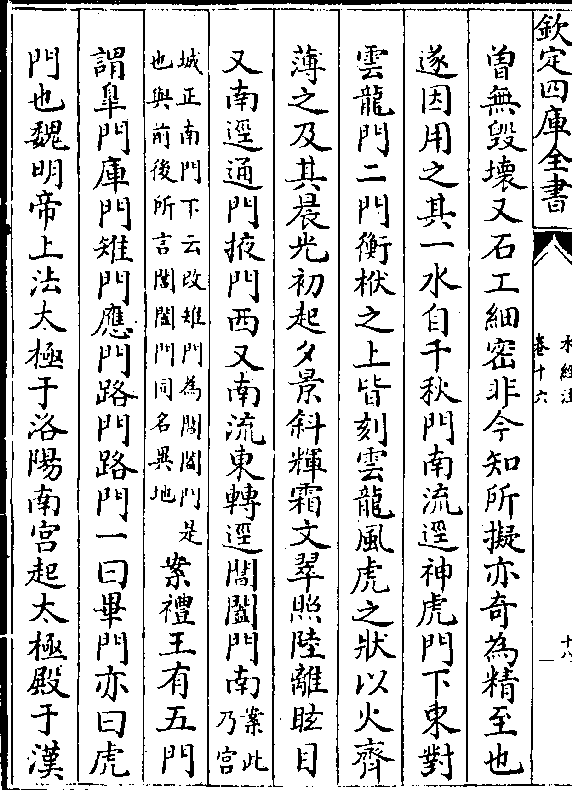 欽定四庫全書
水經注
卷十六
十八
曾無毀壞又石工細密非今知所擬亦奇為精至也
遂因用之其一水自千秋門南流逕神虎門下東對
雲龍門二門衡栿之上皆刻雲龍風虎之狀以火齊
薄之及其晨光初起夕景斜輝霜文翠照陸離眩目
又南逕通門掖門西又南流東轉逕閶闔門南案此乃宫
城正南門下云改雉門為閶闔門是也與前後所言閶闔門同名異地案禮王有五門
謂臯門庫門雉門應門路門路門一曰畢門亦曰虎
門也魏明帝上法太極于洛陽南宫起太極殿于漢